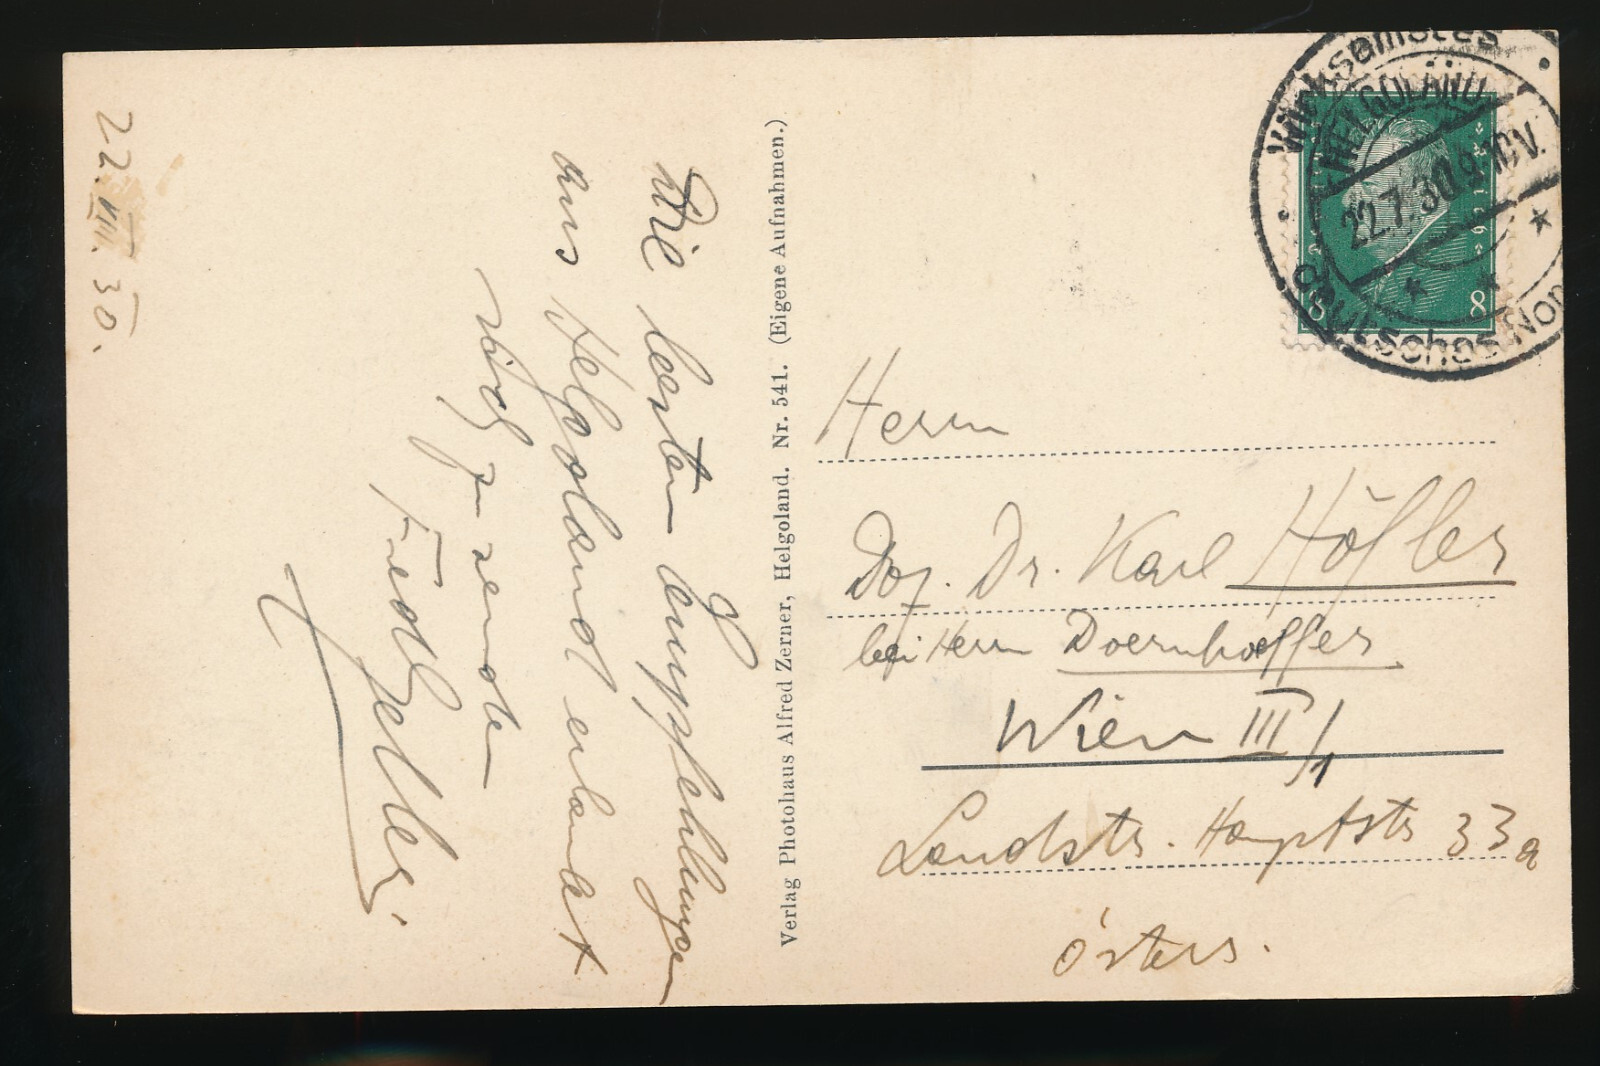 22. VII. 30.
Die besten Empfehlungen
aus Helgoland erlaubt
sich zu senden
Friedl
Verlag Photohaus Alfred Zerner, Helgoland. Nr. 541. (Eigene Aufnahmen.)
Wirksamstes
HELGOLAND
22.7.30.9-10V.
Deutsches Nor
8 8
Herrn
Doz. Dr. Karl Höfler
bei Herrn Doernhoeffer
Wien III/1
Landstr. Hauptstr 33a
Österr.